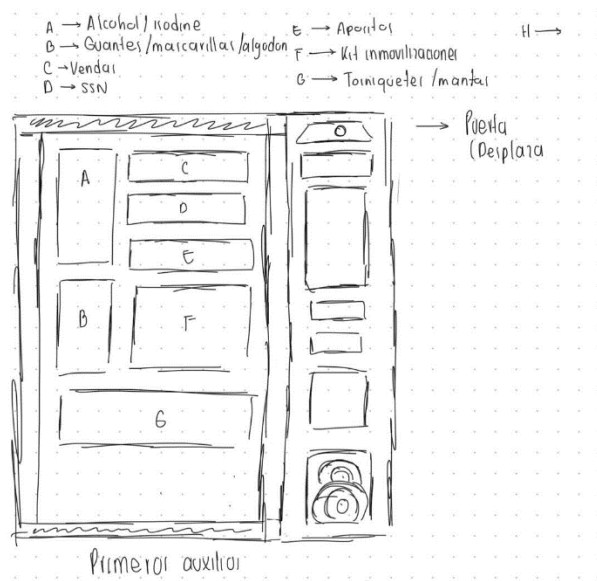 A → Alcohol / isodine
B → Guantes/mascarillas/algodon
C → Vendas
D → SSN
E → Apositos
F → Kit inmovilizaciones
G → Torniquetes /mantas
H →
→ Puerta
(Desplaza
A
C
D
E
B
F
G
Primeros auxilios